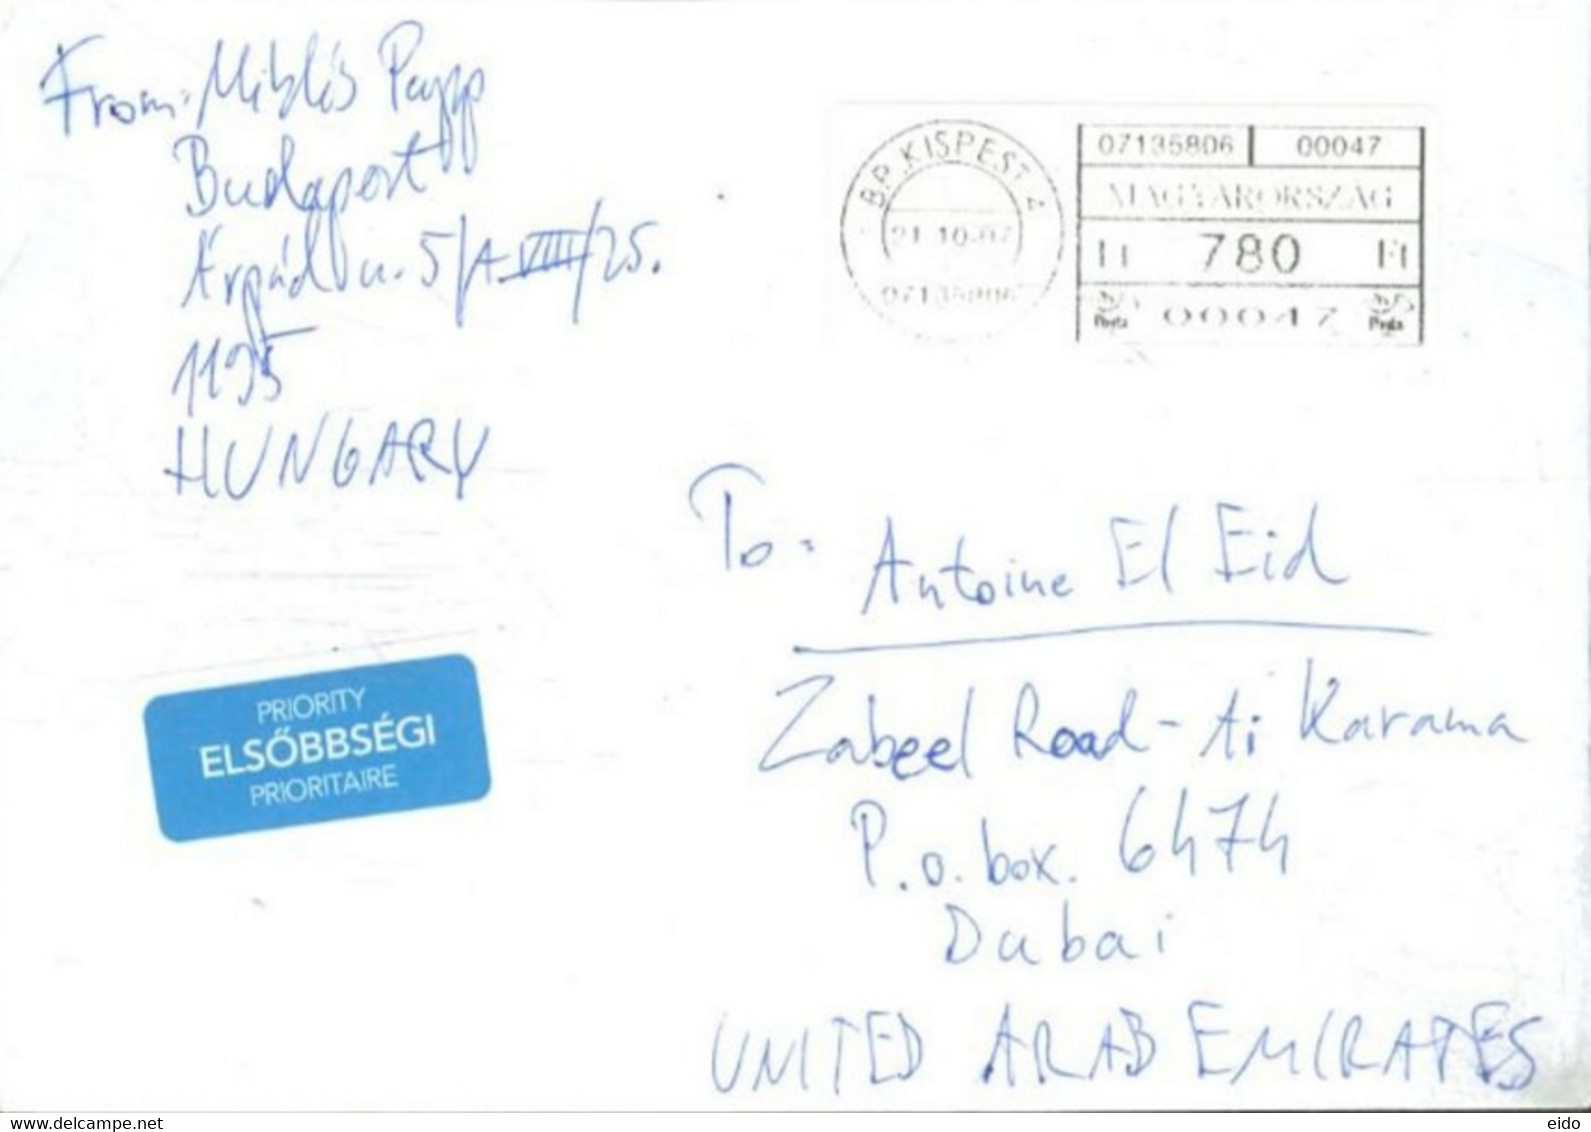 From: Miklós Papp
Budapest
Árpád u. 5/A VIII/25.
1195
HUNGARY
BP. KISPEST 4
21-10-07
07135806
07135806 00047
MAGYARORSZÁG
Ft 780 Ft
Posta 00047 Posta
To:
Antoine El Eid
Zabeel Road - Al Karama
P.o. box. 6474
Dubai
UNITED ARAB EMIRATES
PRIORITY
ELSŐBBSÉGI
PRIORITAIRE
www.delcampe.net
eido